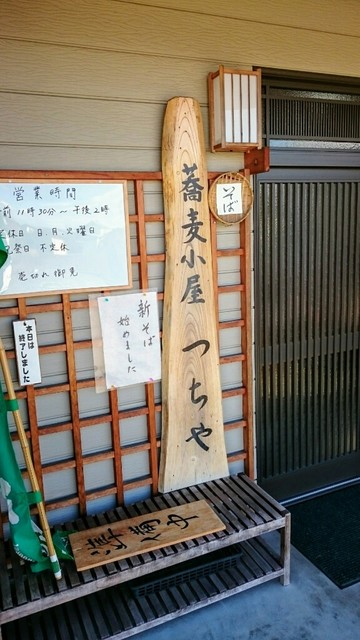 営業時間
前 11時30分〜午後2時
定休日 日.月.火曜日
祭日 不定休
売切れ御免
本日は
終了しました
新そば
始めました
蕎麦小屋 つちや
そば
準備中